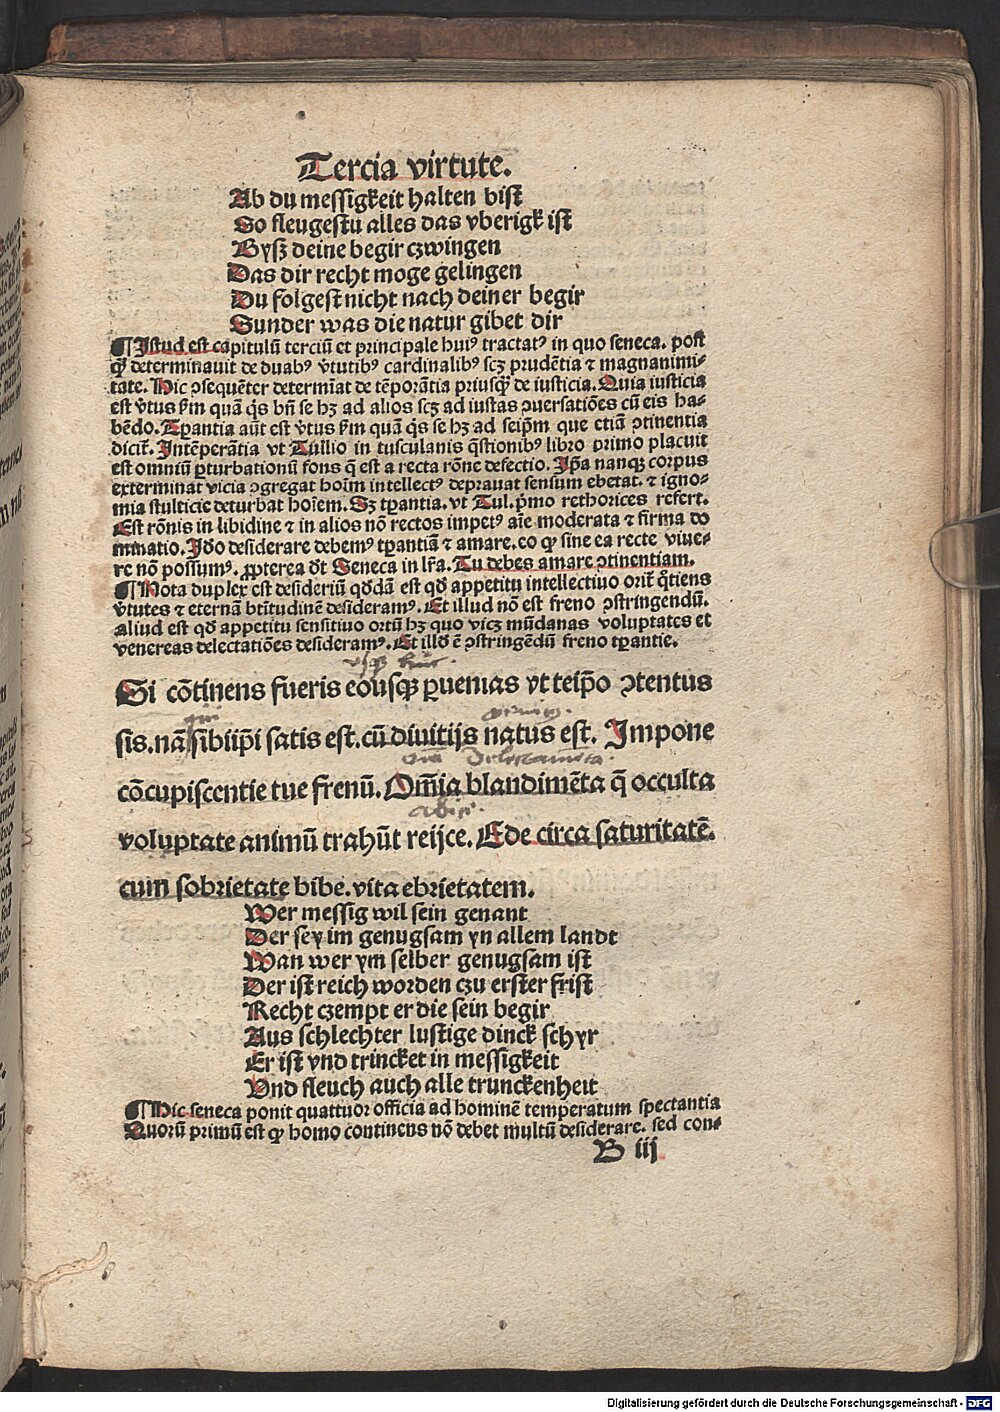 Tercia virtute.
Ab du messigkeit halten bist
So fleugestu alles das vberigk ist
Byſz deine begir czwingen
Das dir recht moge gelingen
Du folgest nicht nach deiner begir
Sunder was die natur gibet dir
¶ Istud est capitulū terciū et principale huiꝰ tractatꝰ in quo seneca. post
ꝙ̄ determinauit de duabꝰ v̓tutibꝰ cardinalibꝰ scꝫ prudētia ⁊ magnanimi⸗
tate. Hic ↄsequēter determīat de tēporātia priusꝙ̄ de iusticia. Quia iusticia
est v̓tus ẜm quā q̇s bn̄ se hꝫ ad alios scꝫ ad iustas ↄuersatiōes cū eis ha⸗
bēdo. Tꝑantia aūt est v̓tus ẜm quā q̇s se hꝫ ad seip̄m que etiā ↄtinentia
dicit̄. Intēperātia vt Tullio in tusculanis q̄stionibꝰ libro primo placuit
est omniū ꝑturbationū fons q̄ est a recta rōne defectio. Ip̄a nanqꝫ corpus
exterminat vicia ↄgregat hoīm intellectꝰ deprauat sensum ebetat. ⁊ igno⸗
mia stulticie deturbat hoīem. Sꝫ tꝑantia. vt Tul. p̓mo rethorices refert.
Est rōnis in libidine ⁊ in alios nō rectos impetꝰ aīe moderata ⁊ firma do
minatio. Id̓o desiderare debemꝰ tꝑantiā ⁊ amare. eo ꝙ sine ea recte viue⸗
re nō possumꝰ. ꝓpterea dt̄ Seneca in lr̄a. Tu debes amare ↄtinentiam.
¶ Nota duplex est desideriū qd̄dā est qd̄ appetitu intellectiuo orit̄ q̊tiens
v̓tutes ⁊ eternā btītudinē desideramꝰ. Et illud nō est freno ↄstringendū.
aliud est qd̄ appetitu sensitiuo ortū hꝫ quo vicꝫ mūdanas voluptates et
venereas delectatiōes desideramꝰ. Et illd̄ ē ↄstringēdū freno tꝑantie.
vsqꝫ huc.
Si cōtinens fueris eousqꝫ ꝑuenias vt teip̄o ↄtentus
sis. nā sibiip̄i satis est. cū diuitijs natus est. Impone
cōcupiscentie tue frenū. Om̄ia blandimēta q̄ occulta
voluptate animū trahūt reijce. Ede circa saturitatē.
cum sobrietate bibe. vita ebrietatem.
Wer messig wil sein genant
Der sey im genugsam yn allem landt
Wan wer ym selber genugsam ist
Der ist reich worden czu erster frist
Recht czempt er die sein begir
Aus schlechter lustige dinck schyr
Er ist vnd trincket in messigkeit
Vnd fleuch auch alle trunckenheit
¶ Hic seneca ponit quattuor officia ad hominē temperatum spectantia
Quorū primū est ꝙ homo continens nō debet multū desiderare. sed con⸗
B iij
Digitalisierung gefördert durch die Deutsche Forschungsgemeinschaft - DFG